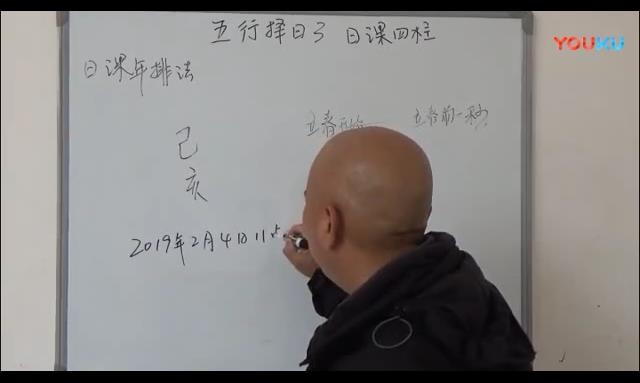 五行择日3 日课四柱
YOUKU
日课年排法
立春开始 立春前一秒
己
亥
2019年2月4日11点